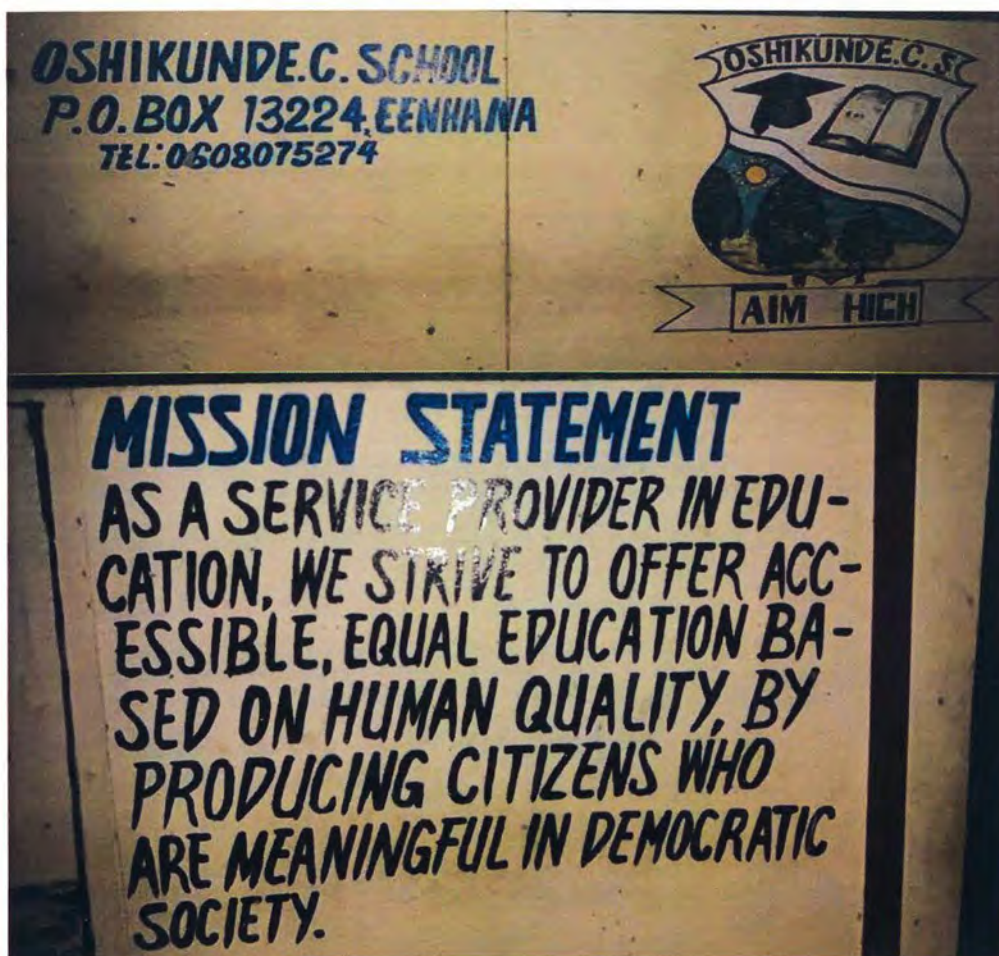 OSHIKUNDE.C. SCHOOL
P.O. BOX 13224, EENHANA
TEL: 0608075274
OSHIKUNDE.C.S
AIM HIGH
MISSION STATEMENT
AS A SERVICE PROVIDER IN EDU-
CATION, WE STRIVE TO OFFER ACC-
ESSIBLE, EQUAL EDUCATION BA-
SED ON HUMAN QUALITY, BY
PRODUCING CITIZENS WHO
ARE MEANINGFUL IN DEMOCRATIC
SOCIETY.